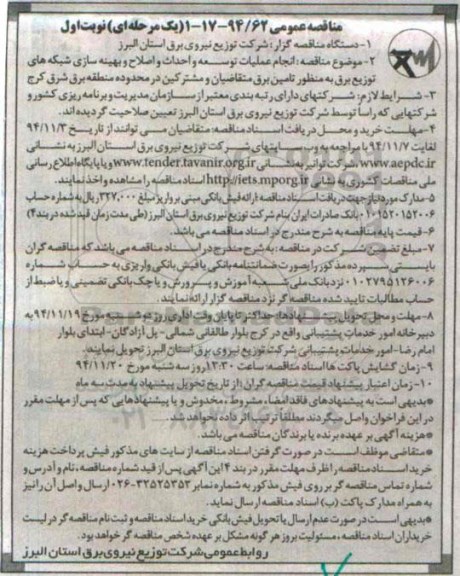 مناقصه عمومی ۹۴/۶۲-۱۷-۱(یک مرحله ای) نوبت اول
۱-دستگاه مناقصه گزار: شرکت توزیع نیروی برق استان البرز
۲-موضوع مناقصه: انجام عملیات توسعه و احداث و اصلاح و بهینه سازی شبکه های
توزیع برق به منظور تامین برق متقاضیان و مشترکین در محدوده منطقه برق شرق کرج
۳-شرایط لازم: شرکتهای دارای رتبه بندی معتبر از سازمان مدیریت و برنامه ریزی کشور و
شرکتهایی که راساً توسط شرکت توزیع نیروی برق استان البرز تعیین صلاحیت گردیده اند.
۴-مهلت خرید و محل دریافت اسناد مناقصه: متقاضیان می توانند از تاریخ ۹۴/۱۱/۳
لغایت ۹۴/۱۱/۷ با مراجعه به وب سایتهای شرکت توزیع نیروی برق استان البرز به نشانی
www.aepdc.ir، شرکت توانیر به نشانی www.tender.tavanir.org.ir و یا پایگاه اطلاع رسانی
ملی مناقصات کشوری به نشانی http://iets.mporg.ir اسناد مناقصه را مشاهده و اخذ نمایند.
۵-مدارک مورد نیاز جهت دریافت اسناد مناقصه: ارائه فیش بانکی مبنی بر واریز مبلغ ۳۲۷,۰۰۰ ریال به شماره حساب
۰۱۰۱۵۲۰۱۵۲۰۰۶ بانک صادرات ایران بنام شرکت توزیع نیروی برق استان البرز (طی مدت زمان قید شده در بند۴)
۶-قیمت پایه مناقصه به شرح مندرج در اسناد مناقصه می باشد.
۷-مبلغ تضمین شرکت در مناقصه: به شرح مندرج در اسناد مناقصه می باشد که مناقصه گران
بایستی سپرده مذکور را بصورت ضمانتنامه بانکی یا فیش بانکی واریزی به حساب شماره
۰۱۰۲۷۹۵۱۲۶۰۰۶ نزد بانک ملی شعبه آموزش و پرورش و یا چک بانکی تضمینی و یا ضبط از
حساب مطالبات تایید شده مناقصه گر نزد مناقصه گزار ارائه نمایند.
۸-مهلت و محل تحویل پیشنهادها: حداکثر تا پایان وقت اداری روز دوشنبه مورخ ۹۴/۱۱/۱۹ به
دبیرخانه امور خدمات پشتیبانی واقع در کرج بلوار طالقانی شمالی-پل آزادگان-ابتدای بلوار
امام رضا-امور خدمات پشتیبانی شرکت توزیع نیروی برق استان البرز تحویل نمایند.
۹-زمان گشایش پاکت ها اسناد مناقصه: ساعت ۱۳:۳۰ روز سه شنبه مورخ ۹۴/۱۱/۲۰
۱۰-زمان اعتبار پیشنهاد قیمت مناقصه گران: از تاریخ تحویل پیشنهاد به مدت سه ماه
*بدیهی است به پیشنهادهای فاقد امضاء، مشروط، مخدوش و یا پیشنهادهایی که پس از مهلت مقرر
در این فراخوان واصل میگردند مطلقاً ترتیب اثر داده نخواهد شد.
*هزینه آگهی بر عهده برنده یا برندگان مناقصه می باشد.
*متقاضی موظف است در صورت گرفتن اسناد مناقصه از سایت های مذکور فیش پرداخت هزینه
خرید اسناد مناقصه را ظرف مهلت مقرر در بند ۴ این آگهی پس از قید شماره مناقصه، نام و آدرس و
شماره تماس مناقصه گر بر روی فیش مذکور به شماره نمابر ۳۲۵۲۵۳۵۲-۰۲۶ ارسال و اصل آن را نیز
به همراه مدارک پاکت (ب) اسناد مناقصه ارسال نماید.
*بدیهی است در صورت عدم ارسال یا تحویل فیش بانکی خرید اسناد مناقصه و ثبت نام مناقصه گر در لیست
خریداران اسناد مناقصه، مسئولیت بروز هر گونه مشکل بر عهده شخص مناقصه گر خواهد بود.
روابط عمومی شرکت توزیع نیروی برق استان البرز